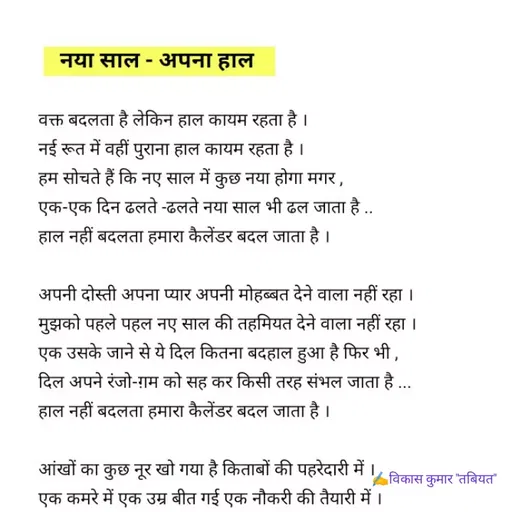 नया साल - अपना हाल
वक्त बदलता है लेकिन हाल कायम रहता है ।
नई रूत में वहीं पुराना हाल कायम रहता है ।
हम सोचते हैं कि नए साल में कुछ नया होगा मगर ,
एक-एक दिन ढलते -ढलते नया साल भी ढल जाता है ..
हाल नहीं बदलता हमारा कैलेंडर बदल जाता है ।
अपनी दोस्ती अपना प्यार अपनी मोहब्बत देने वाला नहीं रहा ।
मुझको पहले पहल नए साल की तहमियत देने वाला नहीं रहा ।
एक उसके जाने से ये दिल कितना बदहाल हुआ है फिर भी ,
दिल अपने रंजो-ग़म को सह कर किसी तरह संभल जाता है ...
हाल नहीं बदलता हमारा कैलेंडर बदल जाता है ।
आंखों का कुछ नूर खो गया है किताबों की पहरेदारी में ।
✍️विकास कुमार "तबियत"
एक कमरे में एक उम्र बीत गई एक नौकरी की तैयारी में ।